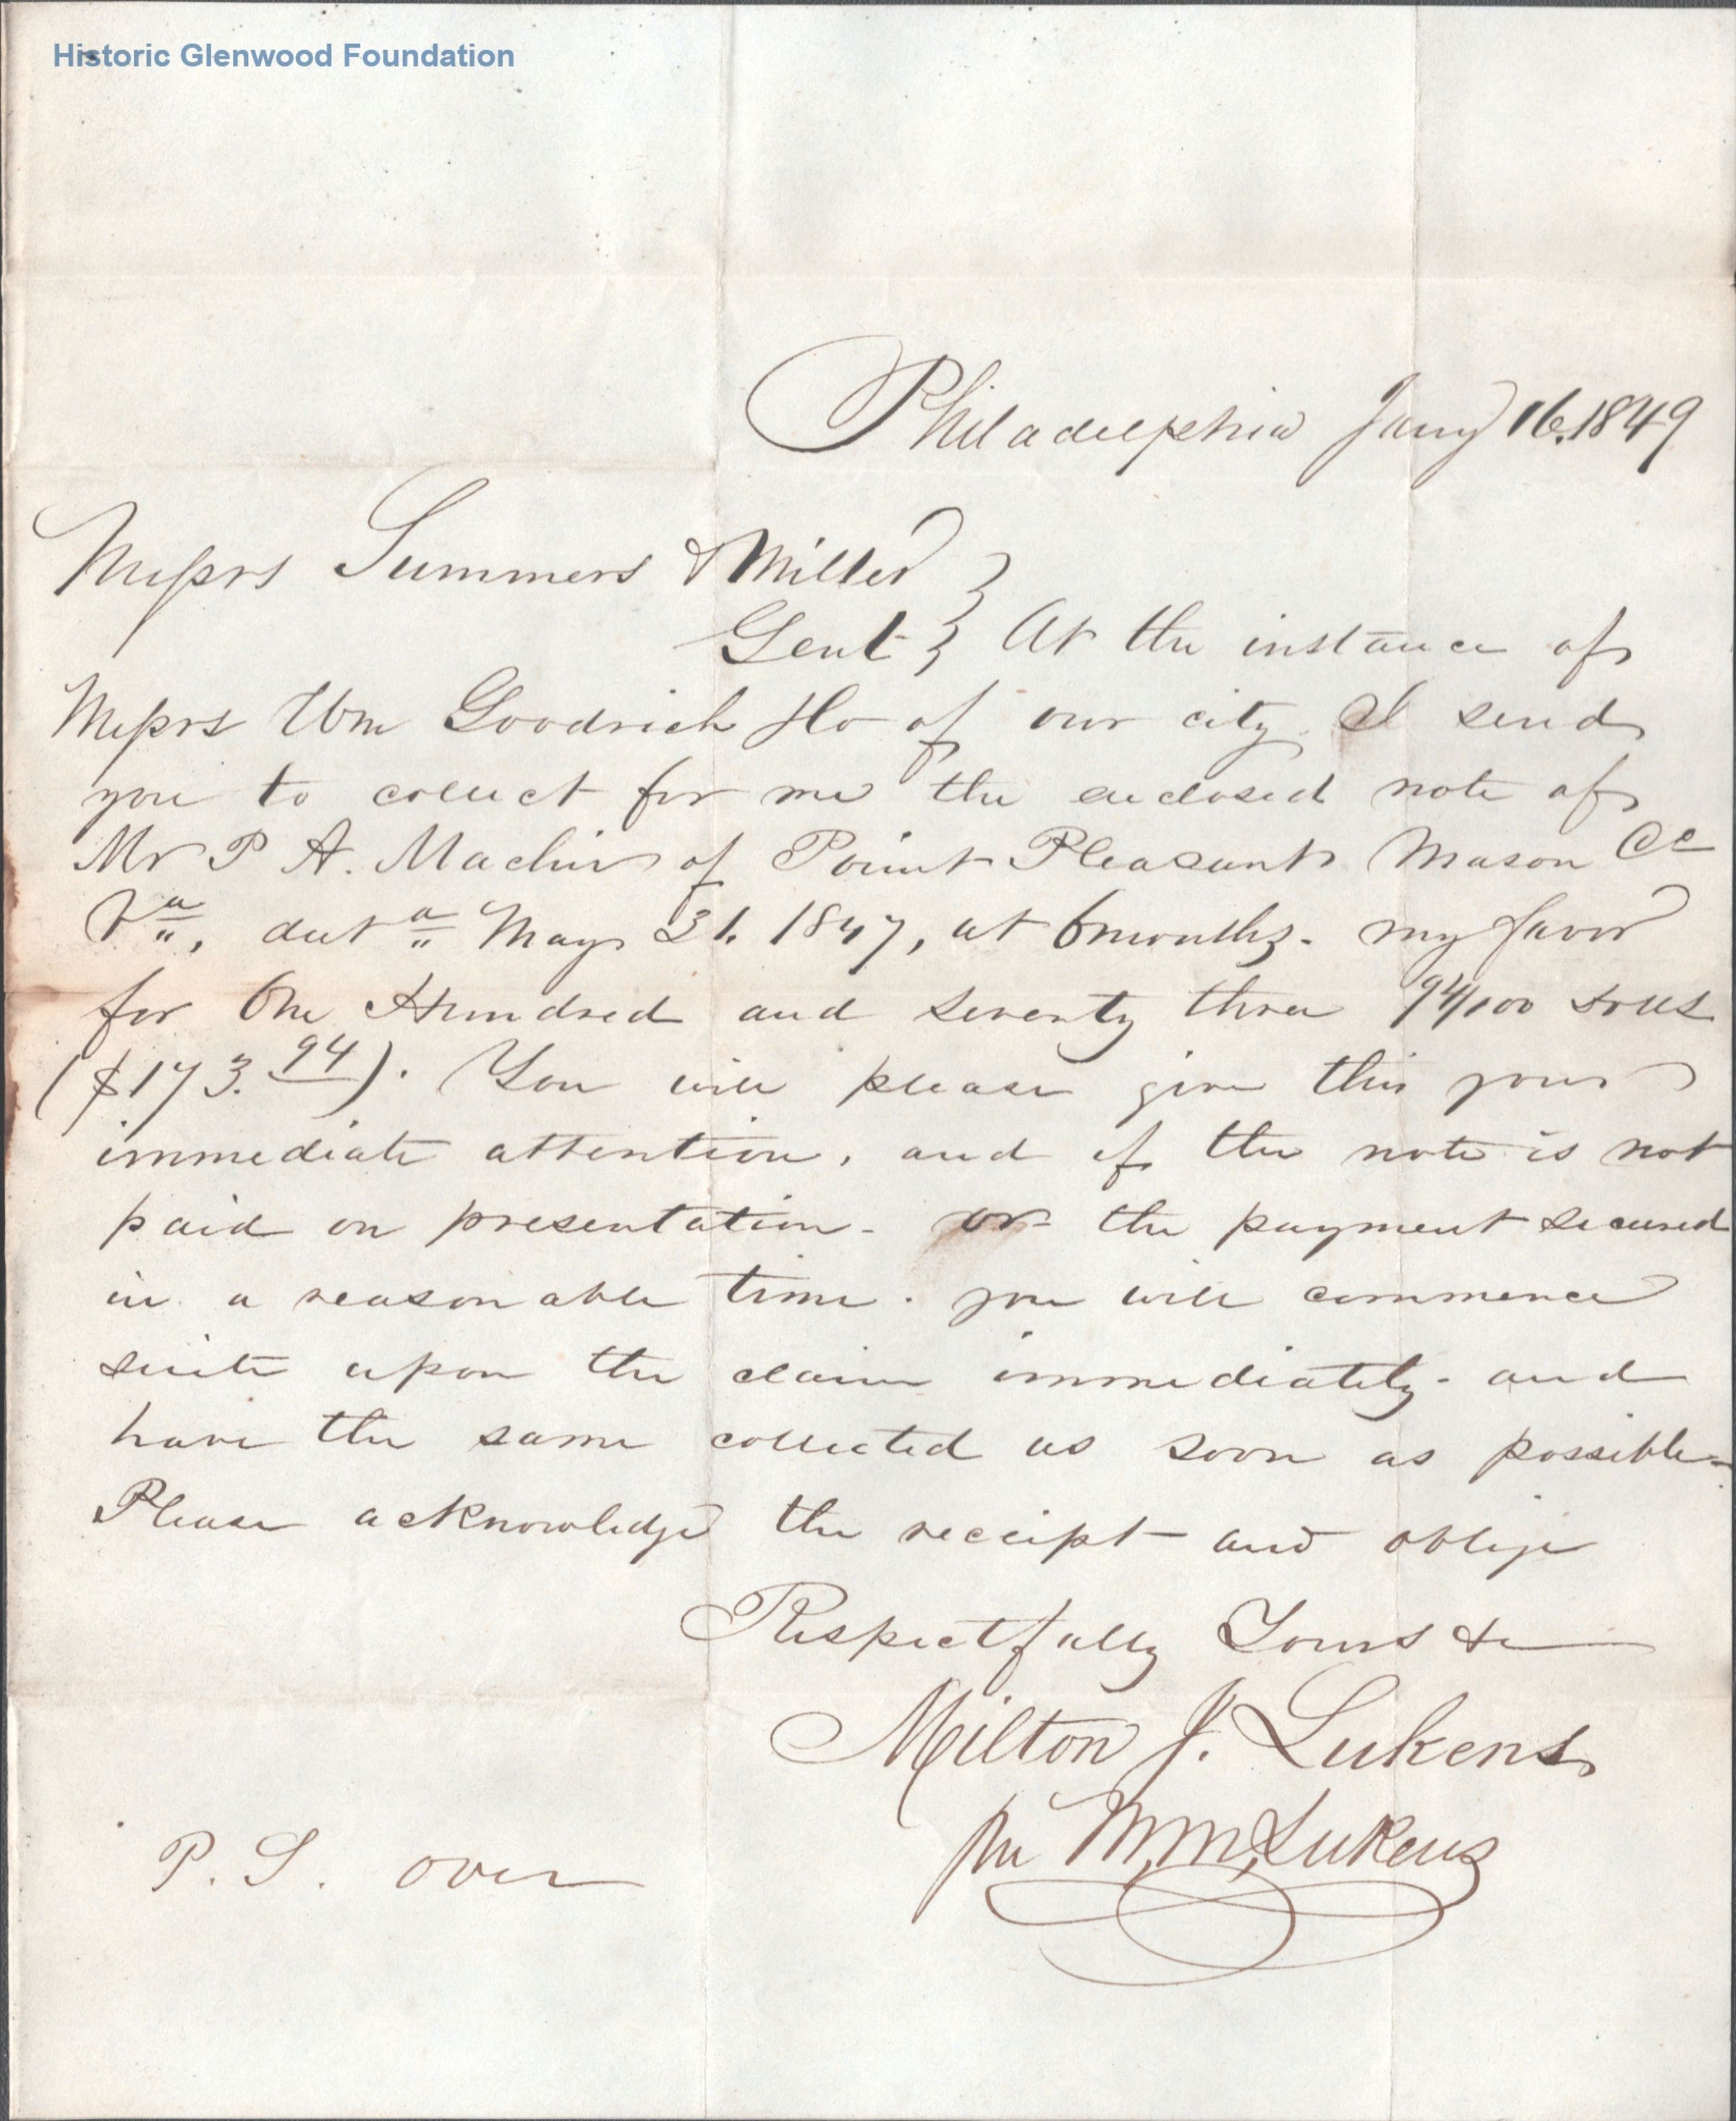 Historic Glenwood Foundation
Philadelphia Jany 16. 1849
Messrs Summers & Miller
Gent At the instance of
Messrs Wm Goodrich & Co of our city I send
you to collect for me the enclosed note of
Mr P A. Machir of Point Pleasant Mason Co
Va, dat May 31. 1847, at 6 months. my favor
for One Hundred and seventy three 94/100 Dolls
($173.94). You will please give this your
immediate attention, and if the note is not
paid on presentation - or the payment secured
in a reasonable time. you will commence
suite upon the claim immediately. and
have the same collected as soon as possible -
Please acknowledge the receipt and oblige
Respectfully Yours &c
Milton J. Lukens
per W.M. Lukens
P. S. over